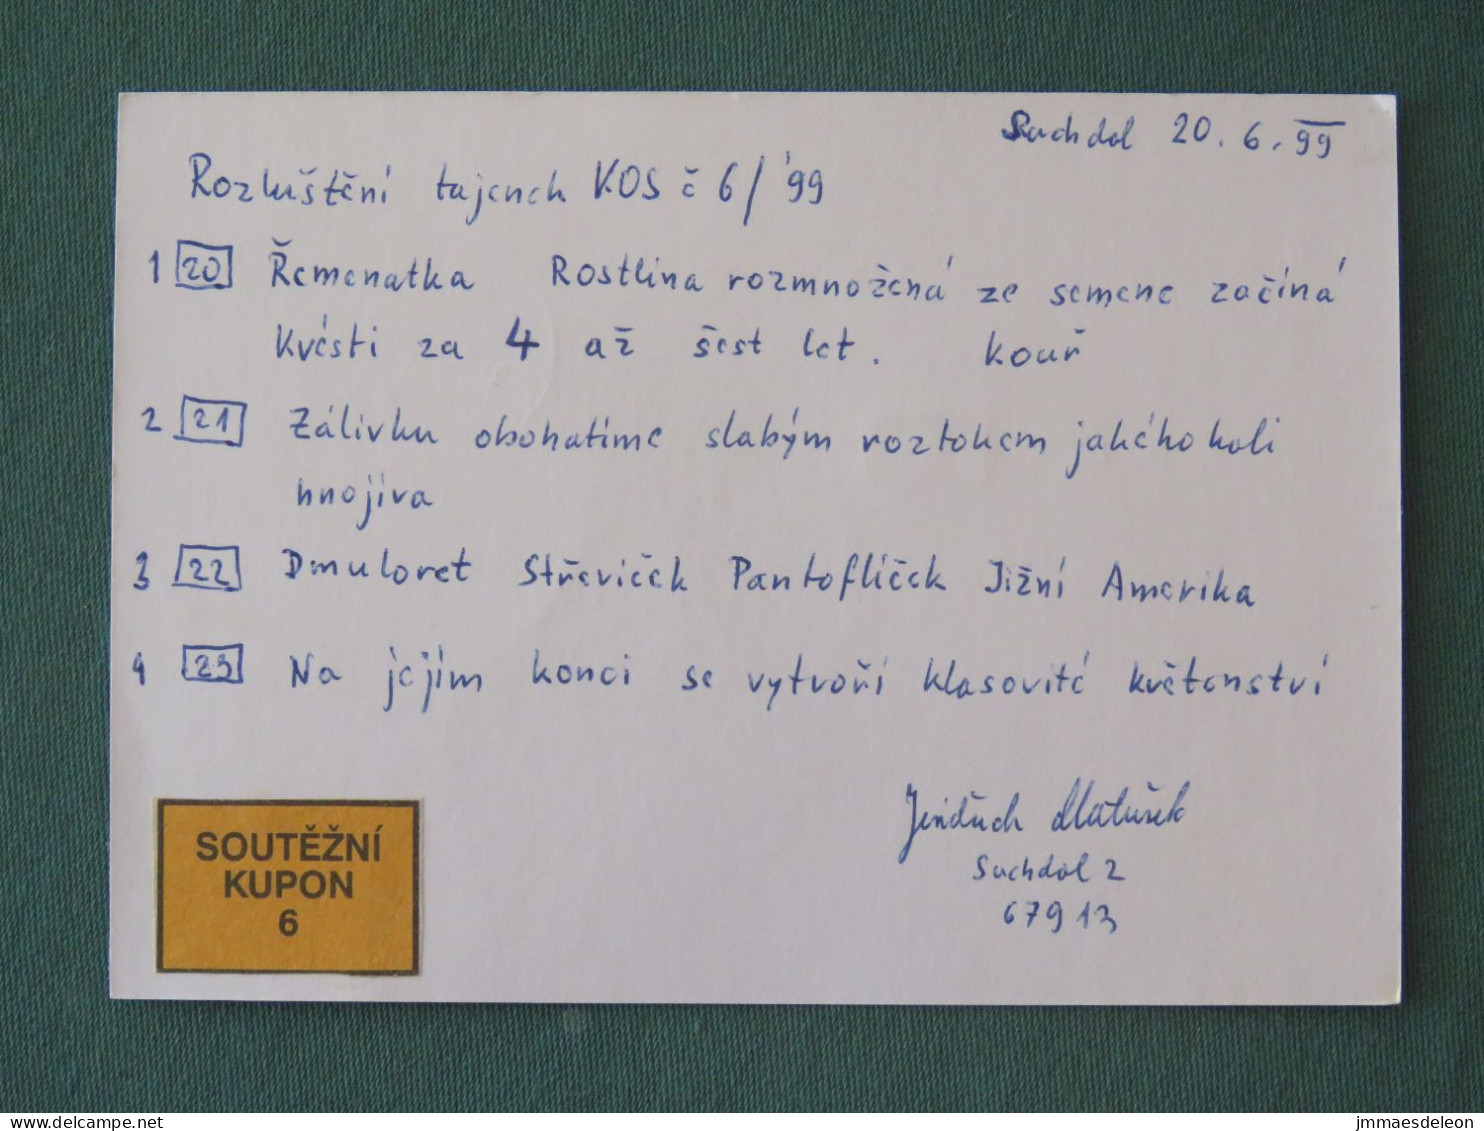 Suchdol 20. 6. 99
Rozluštění tajench KOS č 6/'99
1 20 Řemenatka Rostlina rozmnožená ze semene začíná
Kvésti za 4 až šest let. kouř
2 21 Zálivku obohatíme slabým roztokem jakéhokoli
hnojiva
3 22 Dmuloret Střevíček Pantoflíček Jižní Amerika
4 23 Na jejím konci se vytvoří klasovité květenství
Jindřich Matušek
Suchdol 2
67913
SOUTĚŽNÍ
KUPON
6
www.delcampe.net
jmmaesdeleon